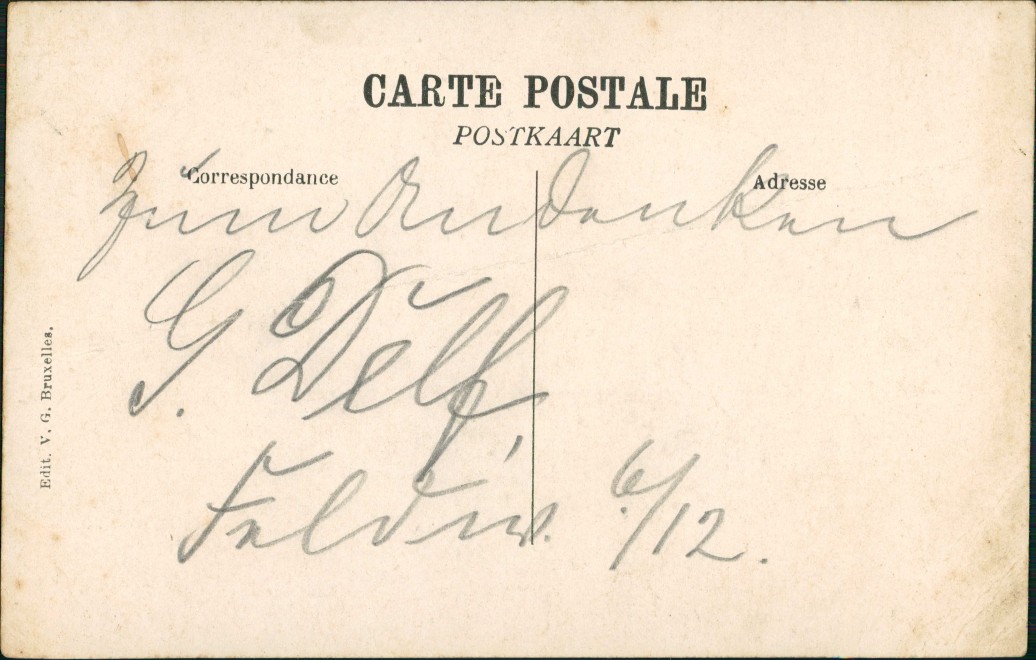 CARTE POSTALE
POSTKAART
Correspondance
Adresse
Zum Andenken
G. Delf,
Feldw. 6/12.
Edit. V. G. Bruxelles.